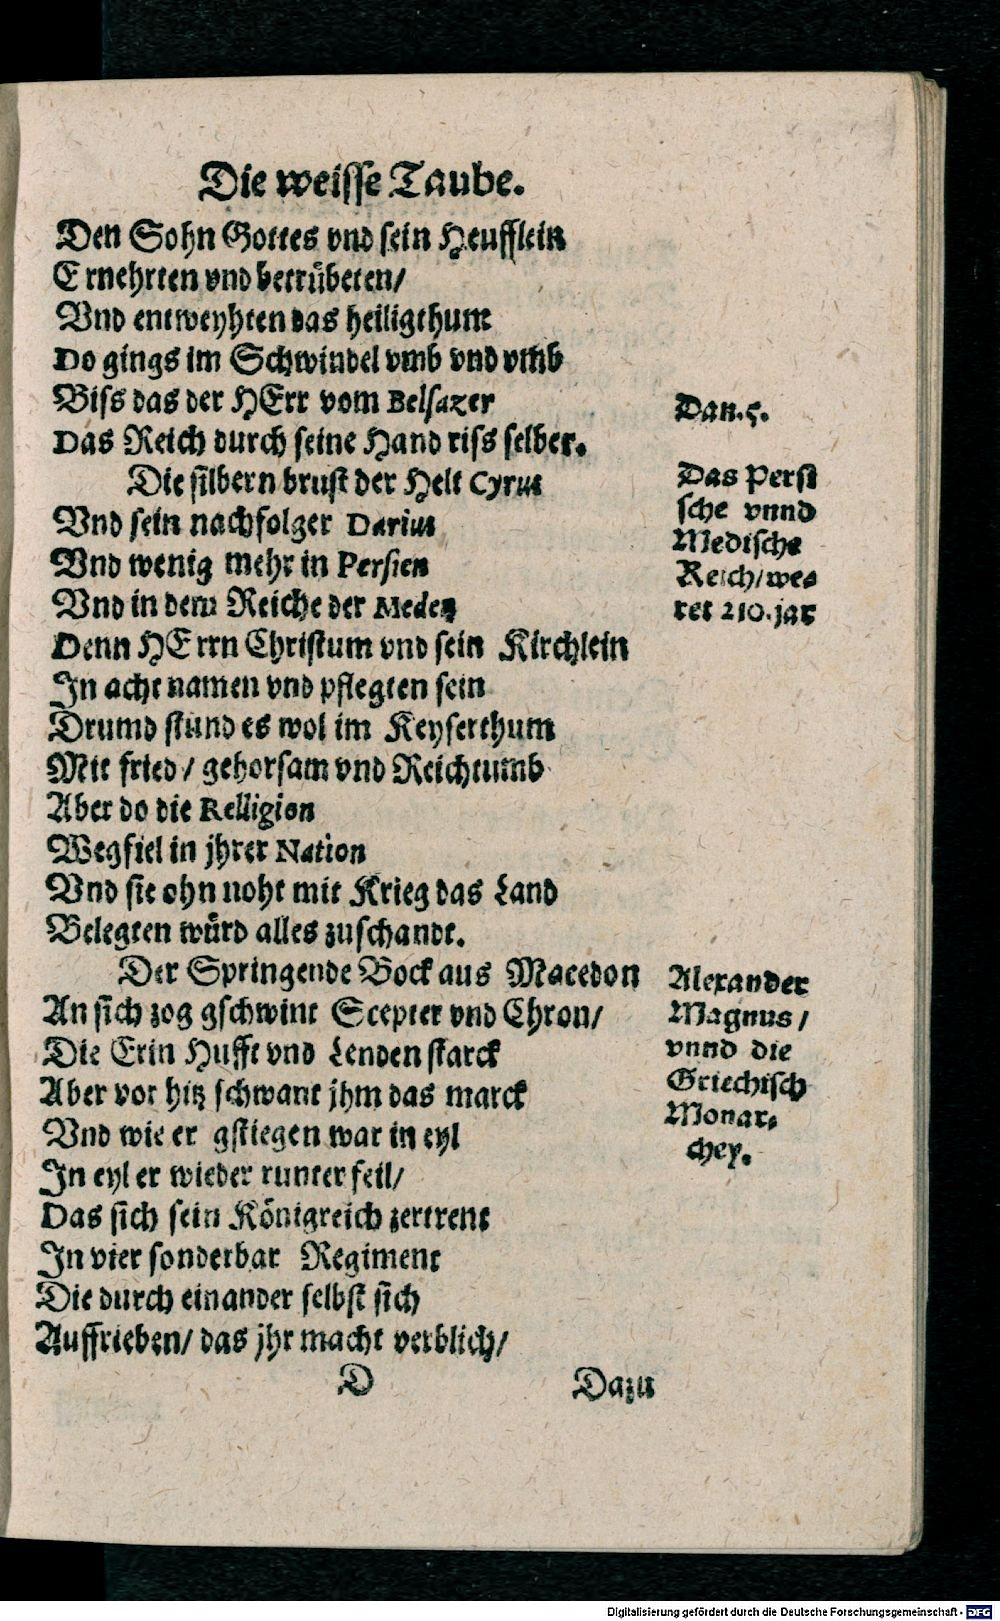 Die weisse Taube.
Den Sohn Gottes vnd sein Heufflein
Ernehrten vnd betrübeten/
Vnd entweyhten das heiligthum
Do gings im Schwindel vmb vnd vmb
Biss das der HErr vom Belsazer
Das Reich durch seine Hand riss selber.
Dan. 5.
Die silbern brust der Helt Cyrus
Vnd sein nachfolger Darius
Vnd wenig mehr in Persien
Vnd in dem Reiche der Meden
Das Persi
sche vnnd
Medische
Reich/we⸗
ret 210. jar
Denn HErrn Christum vnd sein Kirchlein
In acht namen vnd pflegten sein
Drumb stund es wol im Keyserthum
Mit fried/ gehorsam vnd Reichtumb
Aber do die Relligion
Wegfiel in jhrer Nation
Vnd sie ohn noht mit Krieg das Land
Belegten würd alles zuschandt.
Der Springende Bock aus Macedon
An sich zog gschwint Scepter vnd Chron/
Die Erin Hufft vnd Lenden starck
Aber vor hitz schwant jhm das marck
Vnd wie er gstiegen war in eyl
In eyl er wieder runter feil/
Alexander
Magnus/
vnnd die
Griechisch
Monar⸗
chey.
Das sich sein Königreich zertrent
In vier sonderbar Regiment
Die durch einander selbst sich
Auffrieben/ das jhr macht verblich/
D
Dazu
Digitalisierung gefördert durch die Deutsche Forschungsgemeinschaft - DFG